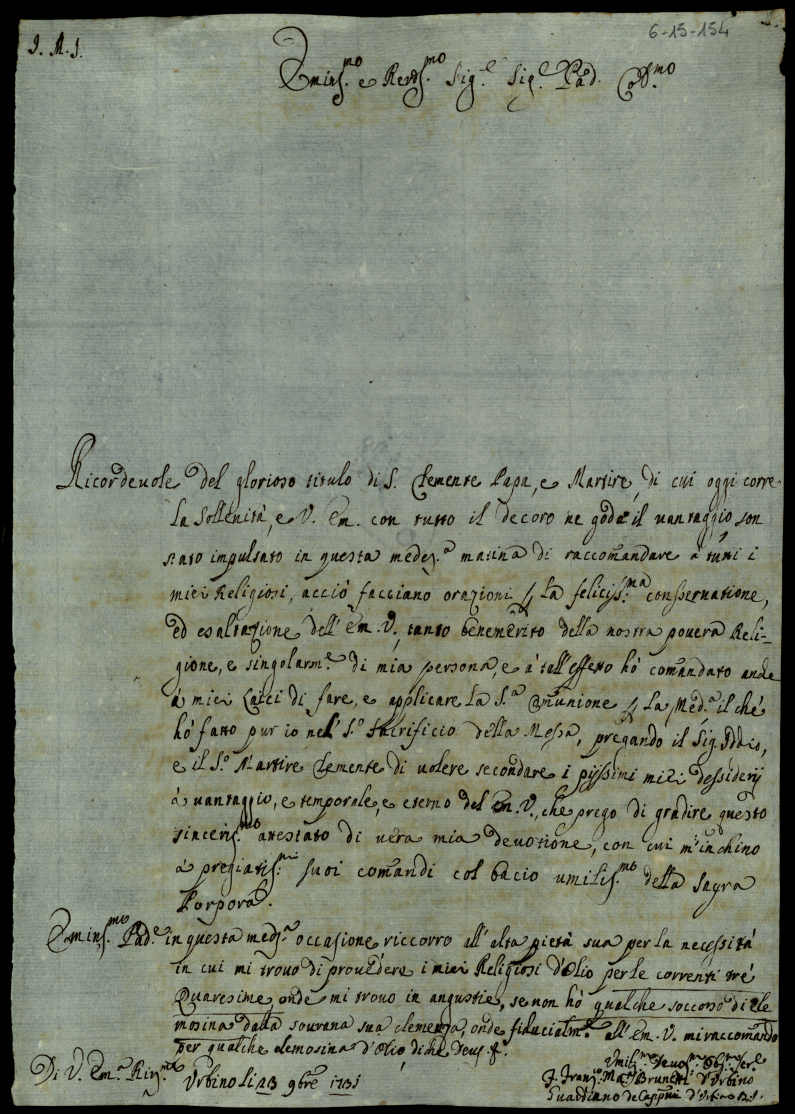 6-15-154
J. M. J.
Emins.mo e Revds.mo Sig.e Sig.e Pad. Col.mo
Ricordevole del glorioso titulo di S. Clemente Papa, e Martire, di cui oggi corre
la Sollenità, e V. Em. con tutto il decoro ne gode il vantaggio son
stato impulsato in questa medes.a matina di raccomandare à tutti i
miei Religiosi, acciò facciano orazioni p la felicis:ma conservatione,
ed esaltazione dell' Em. V., tanto benemerito della nostra povera Reli-
gione, e singolarm.e di mia persona, e à tall'effetto hò comandato anche
à miei Laici di fare, e applicare la S.a Comunione p la Med.a il chè
hò fatto pur io nell' S.o Sacrificio della Messa, pregando il Sig. Iddio,
e il S.o Martire Clemente di volere secondare i pijssimi miei dessiderij
à vantaggio, e temporale, e eterno del Em. V., che prego di gradire questo
sinceris.mo attestato di vera mia devotione, con cui m'inchino
à pregiatis.mi suoi comandi col bacio umilis.mo della sagra
Porpora.
Emins.mo Pad.e in questa meds.a occasione riccorro all' alta pietà sua per la necessità
in cui mi trovo di provedere i miei Religiosi d'Olio per le correnti trè
Quaresime, onde mi trovo in angustie, se non hò qualche soccorso di ele
mosina dalla sovrana sua clemenza, onde fiducialm.e all' Em. V. mi raccomando
per qualche elemosina d'Olio, di che
Di V. Em.a Rev.ma
Urbino li 23 9bre 1731
Umilis.mo Devo.mo Obl.mo Ser.e
F. Franc.o M.a Brunetti d'Urbino
Guardiano de Cappni d'Urbino